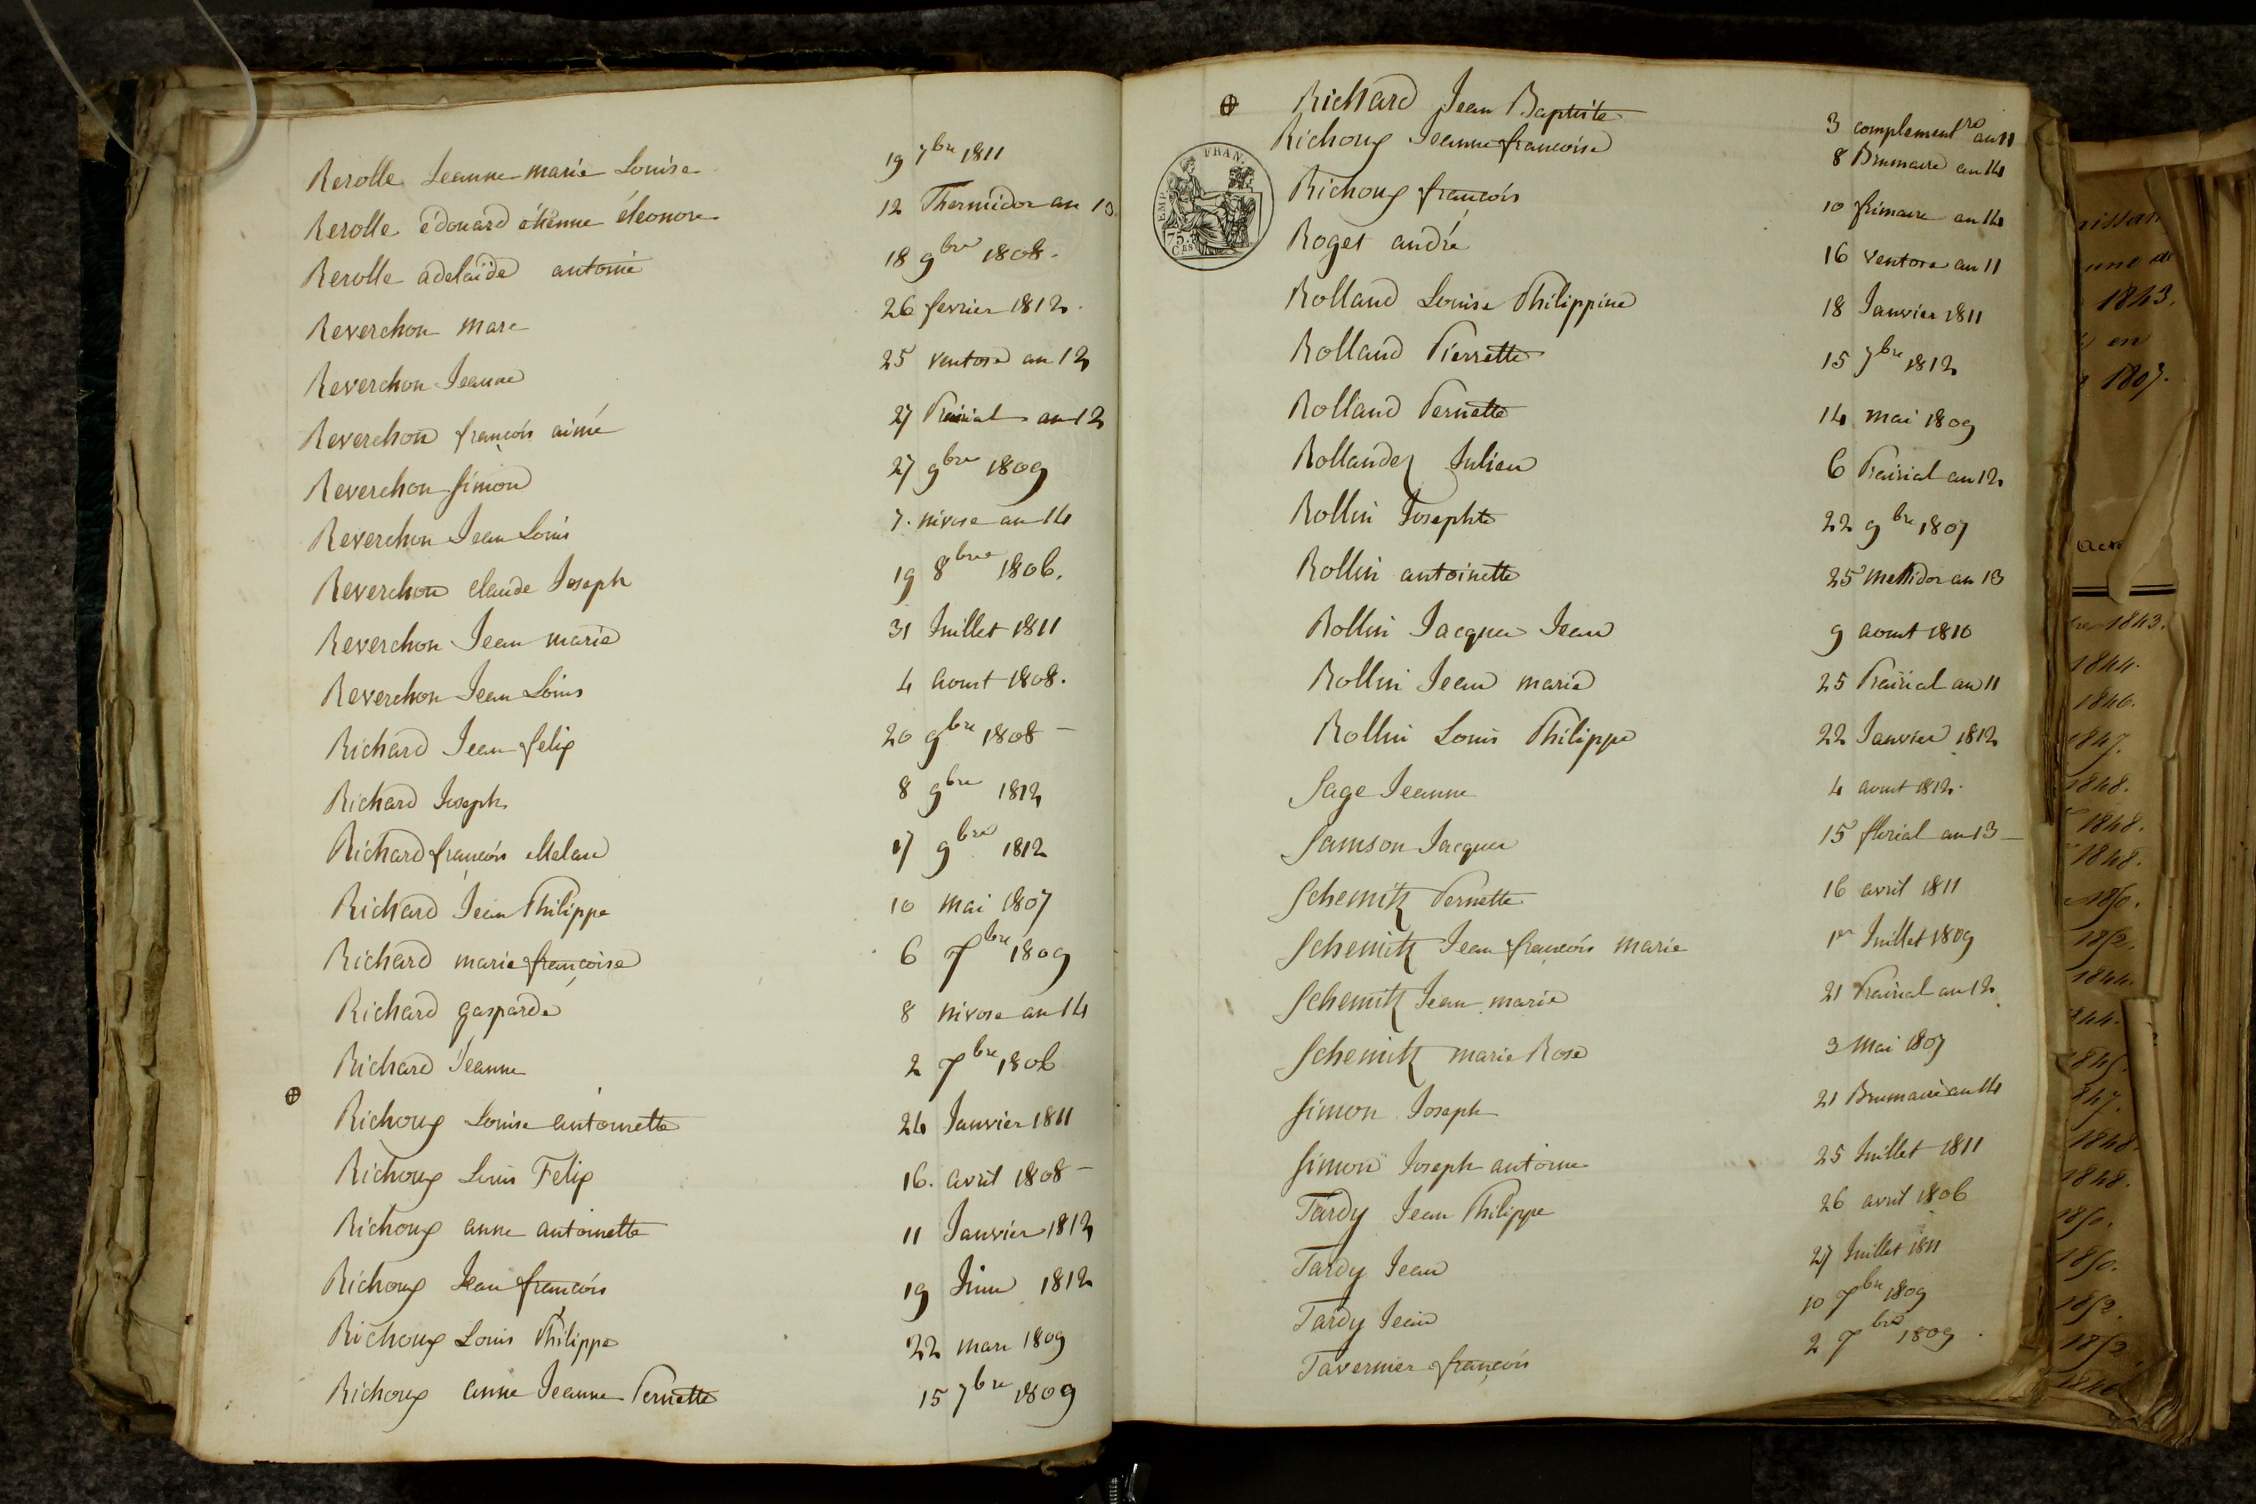 Rerolle Jeanne marie Louise 19 7bre 1811
Rerolle édouard étienne éleonore 12 Thermidor an 13
Rerolle adelaïde antonie 18 9bre 1808.
Reverchon Marc 26 fevrier 1812.
Reverchon Jeanne 25 ventose an 12
Reverchon françois aimé 27 Prairial an 12
Reverchon Simon 27 9bre 1809
Reverchon Jean Louis 7. nivose an 14
Reverchon Claude Joseph 19 8bre 1806.
Reverchon Jean marie 31 Juillet 1811
Reverchon Jean Louis 4 aoust 1808.
Richard Jean felix 20 9bre 1808 –
Richard Joseph 8 9bre 1812
Richard françois Melan 17 9bre 1812
Richard Jean Philippe 10 mai 1807
Richard marie françoise 6 7bre 1809
Richard gasparde 8 nivose an 14
Richard Jeanne 2 7bre 1806
⊕ Richoux Louise antoinette 24 Janvier 1811
Richoux Louis Felix 16. avril 1808 –
Richoux anne antoinette 11 Janvier 1812
Richoux Jean françois 19 Juin 1812
Richoux Louis Philippe 22 mars 1809
Richoux anne Jeanne Pernette 15 7bre 1809
⊕ Richard Jean Baptiste 3 complementre an 11
Richoux Jeanne francoise 8 Brumaire an 14
Richoux francois 10 frimaire an 14
EMP. FRAN.
75.
CES
Roget andré 16 ventose an 11
Rolland Louise Philippine 18 Janvier 1811
Rolland Pierrette 15 7bre 1812
Rolland Pernette 14 mai 1809
Rollandez Julien 6 Prairial an 12.
Rollin Josephte 22 9bre 1807
Rollin antoinette 25 Messidor an 13
Rollin Jacques Jean 9 aoust 1810
Rollin Jean marie 25 Prairial an 11
Rollin Louis Philippe 22 Janvier 1812
Sage Jeanne 4 aoust 1812.
Samson Jacques 15 florial an 13 –
Schemitz Pernette 16 avril 1811
Schemitz Jean françois marie 1er Juillet 1809
Schemitz Jean marie 21 Prairial an 12
Schemitz marie Rose 3 Mai 1807
Simon Joseph 21 Brumaire an 14
Simon Joseph antoine 25 Juillet 1811
Tardy Jean Philippe 26 avril 1806
Tardy Jean 27 Juillet 1811
Tardy Jean 10 7bre 1809
Tavernier françois 2 7bre 1809
1843.
en
1807.
1843.
1844.
1846.
1847.
1848.
1848.
1848.